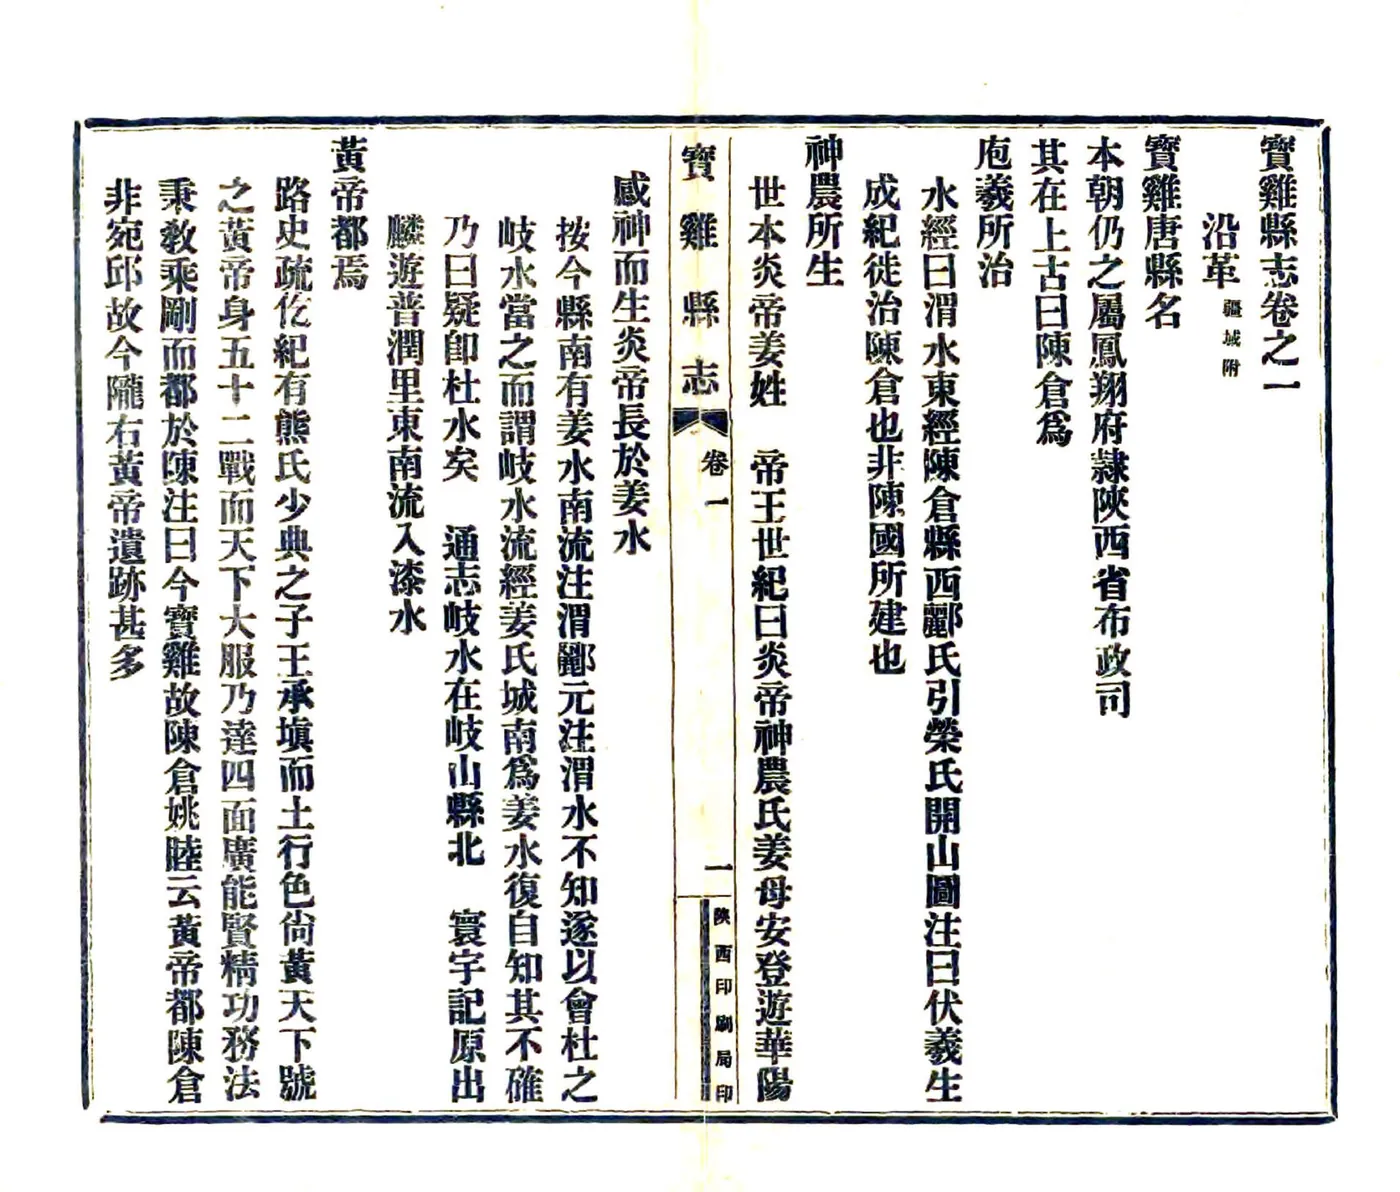 寶雞縣志卷之一
沿革 疆域附
寶雞唐縣名
本朝仍之屬鳳翔府隷陝西省布政司
其在上古曰陳倉爲
庖羲所治
水經曰渭水東經陳倉縣西酈氏引榮氏開山圖注曰伏羲生
成紀徙治陳倉也非陳國所建也
神農所生
世本炎帝姜姓　帝王世紀曰炎帝神農氏姜母安登遊華陽
寶雞縣志 卷一 一 陝西印刷局印
感神而生炎帝長於姜水
按今縣南有姜水南流注渭酈元注渭水不知遂以會杜之
岐水當之而謂岐水流經姜氏城南爲姜水復自知其不確
乃曰疑卽杜水矣　通志岐水在岐山縣北　寰宇記原出
麟遊普潤里東南流入漆水
黃帝都焉
路史疏仡紀有熊氏少典之子王承塡而土行色尙黃天下號
之黃帝身五十二戰而天下大服乃達四面廣能賢精功務法
秉敎乘剛而都於陳注曰今寶雞故陳倉姚睦云黃帝都陳倉
非宛邱故今隴右黃帝遺跡甚多